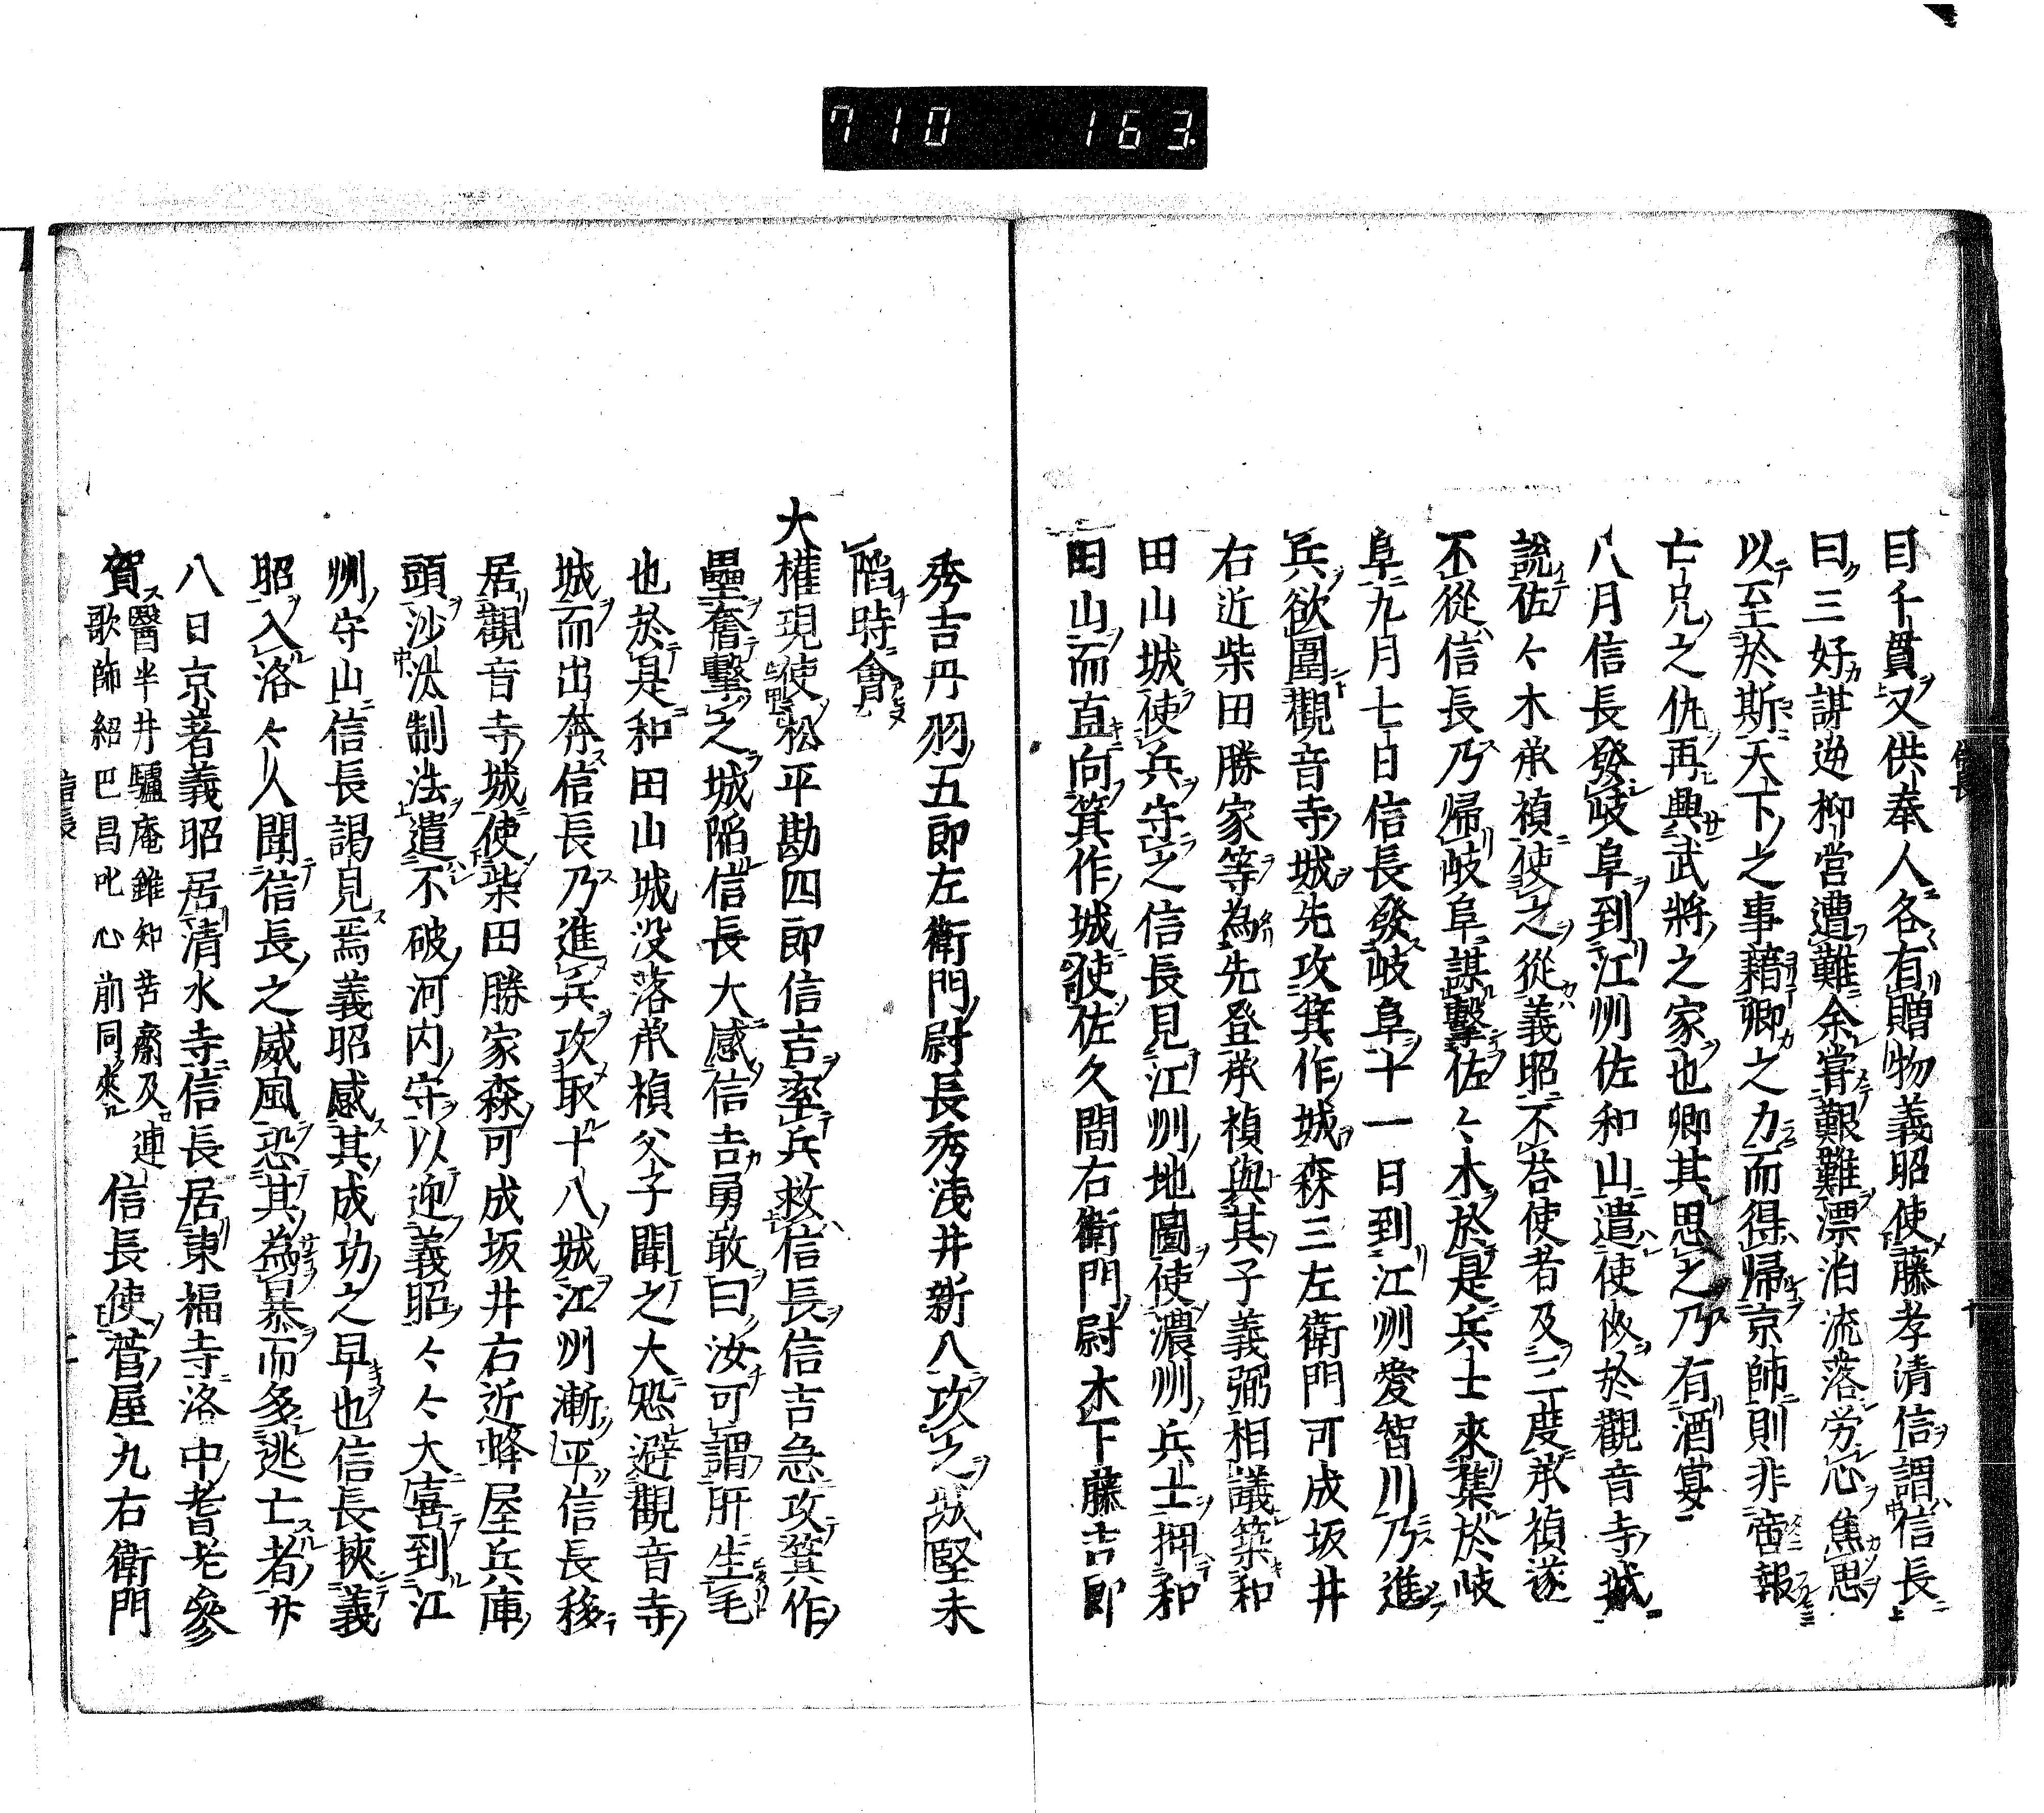 710 163
目千貫又供奉人各有贈物義昭使藤孝清信謂信長
曰三好謀逆柳営遭難余嘗艱難漂泊流落労心焦思
以至於斯天下之事藉卿之力而得帰京師則非啻報
亡兄之仇再興武將之家也卿其思之乃有酒宴
八月信長發岐阜到江州佐和山遣使於觀音寺城
説佐々木承禎使之從義昭不荅使者及三度承禎遂
不從信長乃帰岐阜謀擊佐々木於是兵士來集於岐
阜九月七日信長發岐阜十一日到江州愛智川乃進
兵欲圍觀音寺城先攻箕作城森三左衛門可成坂井
右近柴田勝家等為先登承禎與其子義弼相議築和
田山城使兵守之信長見江州地圖使濃州兵士押和
田山而直向箕作城使佐久間右衛門尉木下藤吉郎
秀吉丹羽五郎左衛門尉長秀浅井新八攻之城堅未
陥時會
大權現使松平勘四郎信吉率兵救信長信吉急攻箕作
壘奮擊之城陥信長大感信吉勇敢曰汝可謂肝生毛
也於是和田山城没落承禎父子聞之大恐避觀音寺
城而出奔信長乃進兵攻取十八城江州漸平信長移
居觀音寺城使柴田勝家森可成坂井右近蜂屋兵庫
頭沙汰制法遣不破河内守以迎義昭々々大喜到江
州守山信長謁見焉義昭感其成功之早也信長挾義
昭入洛々人聞信長之威風恐其為暴而多逃亡者廿
八日京着義昭居清水寺信長居東福寺洛中耆老參
賀醫半井驢庵錐知苦齋及連歌師紹巴昌叱心前同來信長使菅屋九右衛門
信長
十
信長
十一